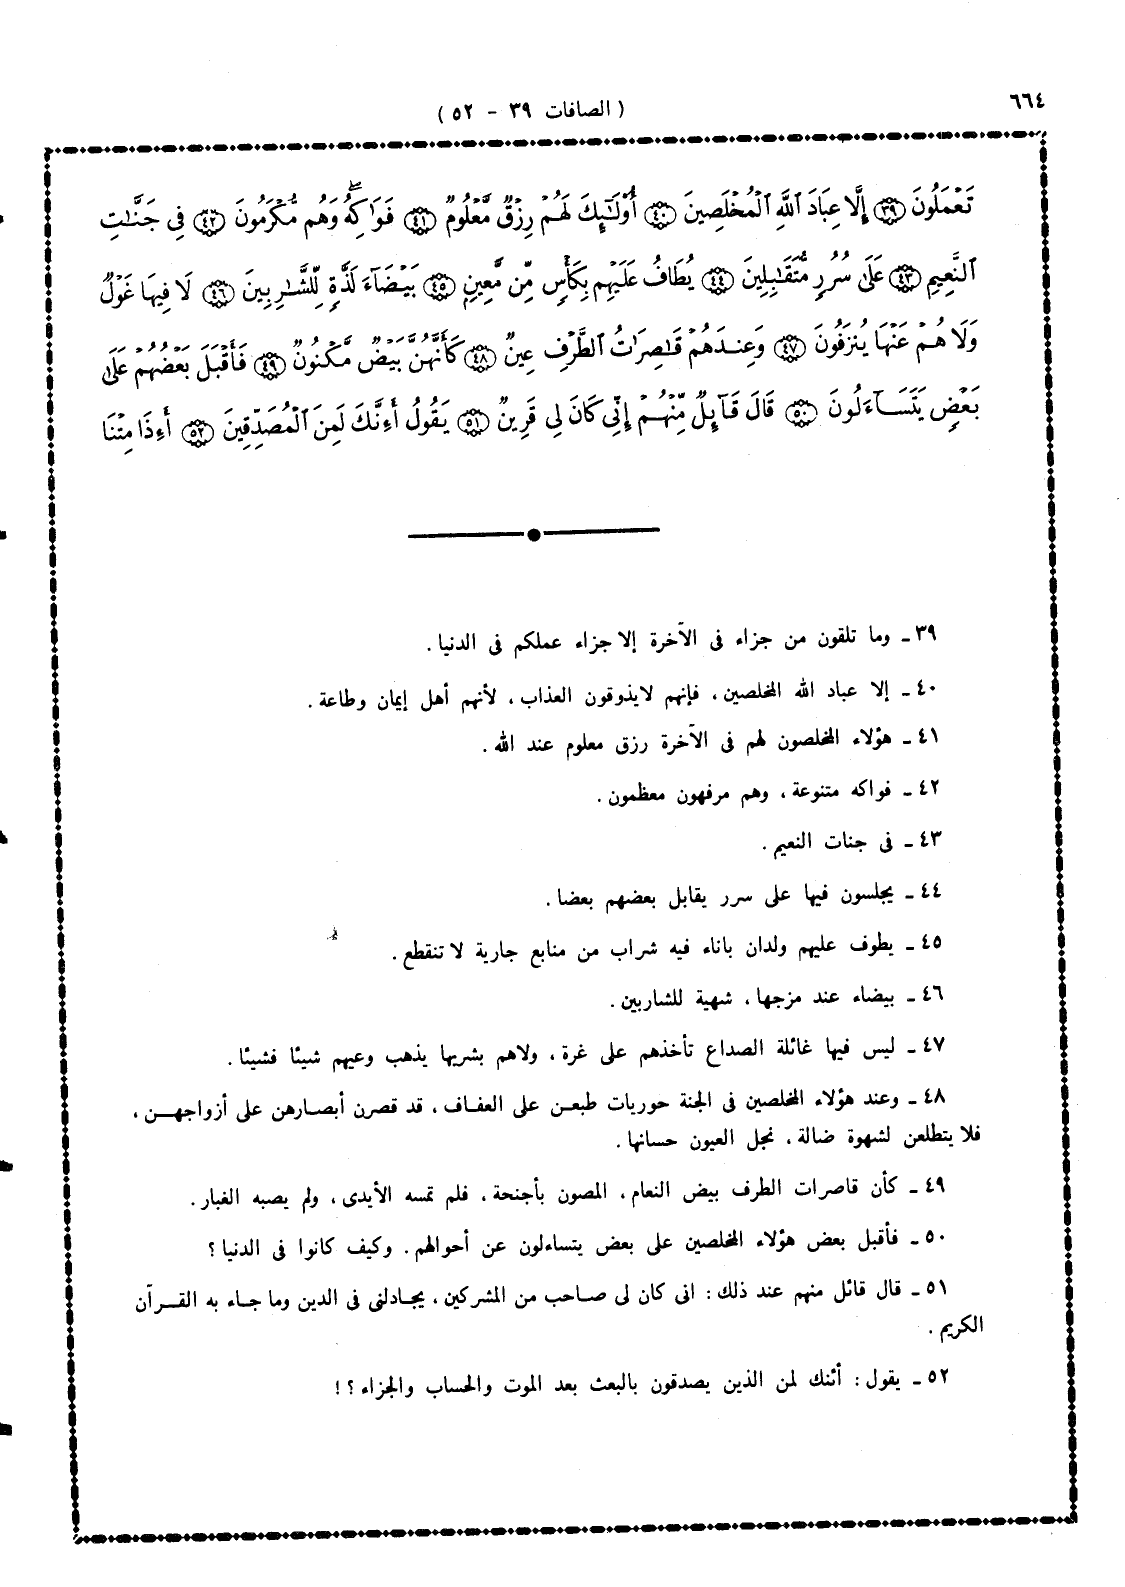 ٦٦٤
( الصافات ٣٩ - ٥٢ )
تَعْمَلُونَ ٣٩ إِلَّا عِبَادَ ٱللَّهِ ٱلْمُخْلَصِينَ ٤٠ أُوْلَٰٓئِكَ لَهُمْ رِزْقٌ مَّعْلُومٌ ٤١ فَوَٰكِهُ ۖ وَهُم مُّكْرَمُونَ ٤٢ فِى جَنَّٰتِ
ٱلنَّعِيمِ ٤٣ عَلَىٰ سُرُرٍ مُّتَقَٰبِلِينَ ٤٤ يُطَافُ عَلَيْهِم بِكَأْسٍ مِّن مَّعِينِۭ ٤٥ بَيْضَآءَ لَذَّةٍ لِّلشَّٰرِبِينَ ٤٦ لَا فِيهَا غَوْلٌ
وَلَا هُمْ عَنْهَا يُنزَفُونَ ٤٧ وَعِندَهُمْ قَٰصِرَٰتُ ٱلطَّرْفِ عِينٌ ٤٨ كَأَنَّهُنَّ بَيْضٌ مَّكْنُونٌ ٤٩ فَأَقْبَلَ بَعْضُهُمْ عَلَىٰ
بَعْضٍ يَتَسَآءَلُونَ ٥٠ قَالَ قَآئِلٌ مِّنْهُمْ إِنِّى كَانَ لِى قَرِينٌ ٥١ يَقُولُ أَءِنَّكَ لَمِنَ ٱلْمُصَدِّقِينَ ٥٢ أَءِذَا مِتْنَا
٣٩ ـ وما تلقون من جزاء فى الآخرة إلا جزاء عملكم فى الدنيا .
٤٠ ـ إلا عباد الله المخلصين ، فإنهم لايذوقون العذاب ، لأنهم أهل إيمان وطاعة .
٤١ ـ هؤلاء المخلصون لهم فى الآخرة رزق معلوم عند الله .
٤٢ ـ فواكه متنوعة ، وهم مرفهون معظمون .
٤٣ ـ فى جنات النعيم .
٤٤ ـ يجلسون فيها على سرر يقابل بعضهم بعضا .
٤٥ ـ يطوف عليهم ولدان باناء فيه شراب من منابع جارية لا تنقطع .
٤٦ ـ بيضاء عند مزجها ، شهية للشاربين .
٤٧ ـ ليس فيها غائلة الصداع تأخذهم على غرة ، ولاهم بشربها يذهب وعيهم شيئا فشيئا .
٤٨ ـ وعند هؤلاء المخلصين فى الجنة حوريات طبعن على العفاف ، قد قصرن أبصارهن على أزواجهن ،
فلا يتطلعن لشهوة ضالة ، نجل العيون حسانها .
٤٩ ـ كأن قاصرات الطرف بيض النعام ، المصون بأجنحة ، فلم تمسه الأيدى ، ولم يصبه الغبار .
٥٠ ـ فأقبل بعض هؤلاء المخلصين على بعض يتساءلون عن أحوالهم . وكيف كانوا فى الدنيا ؟
٥١ ـ قال قائل منهم عند ذلك : انى كان لى صاحب من المشركين ، يجادلنى فى الدين وما جاء به القرآن
الكريم .
٥٢ ـ يقول : أئنك لمن الذين يصدقون بالبعث بعد الموت والحساب والجزاء ؟ !